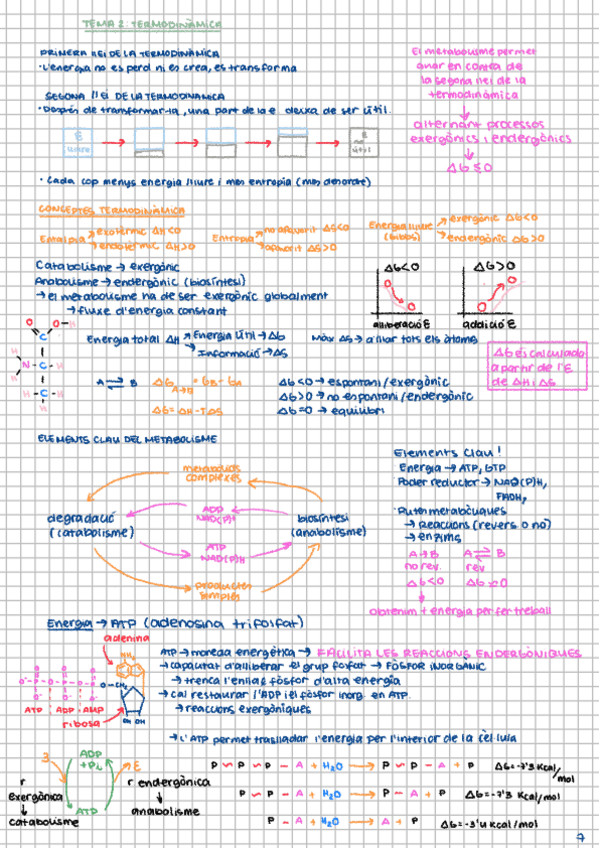 TEMA 2: TERMODINÀMICA
PRIMERA LLEI DE LA TERMODINÀMICA
· L'energia no es perd ni es crea, es transforma
SEGONA LLEI DE LA TERMODINÀMICA
· Després de transformar-la, una part de la e deixa de ser útil.
E lliure
E no útil
· Cada cop menys energia lliure i més entropia (més desordre)
El metabolisme permet
anar en contra de
la segona llei de la
termodinàmica
alternant processos
exergònics i endergònics
ΔG ≤ 0
CONCEPTES TERMODINÀMICA
Entalpia
exotèrmic ΔH<0
endotèrmic ΔH>0
Entropia
no afavorit ΔS<0
afavorit ΔS>0
Energia lliure
(Gibbs)
exergònic ΔG<0
endergònic ΔG>0
Catabolisme → exergònic
Anabolisme → endergònic (biosíntesi)
→ el metabolisme ha de ser exergònic globalment
→ fluxe d'energia constant
ΔG<0
alliberació E
ΔG>0
addició E
Energia total ΔH
Energia útil → ΔG
Informació → ΔS
Màx ΔS → aïllar tots els àtoms
ΔG és calculada
a partir de l'E
de ΔH i ΔS
O O-H
C
H
N-C-H
H-C-H
H
A ⇌ B
ΔG A→B = GB - GA
ΔG = ΔH - TΔS
ΔG<0 → espontani/exergònic
ΔG>0 → no espontani/endergònic
ΔG=0 → equilibri
ELEMENTS CLAU DEL METABOLISME
metabòlits
complexes
degradació
(catabolisme)
ADP
NAD(P)H
ATP
NAD(P)H
biosíntesi
(anabolisme)
productes
simples
Elements clau!
Energia → ATP, GTP
Poder reductor → NAD(P)H,
FADH₂
· Rutes metabòliques
→ Reaccions (revers o no)
→ enzims
A → B A ⇌ B
no rev. rev
ΔG<0 ΔG≃0
obtenim + energia per fer treball
Energia → ATP (adenosina trifosfat)
adenina
ATP ADP AMP
ribosa
O-CH₂
NH₂
OH OH
ATP → moneda energètica → FACILITA LES REACCIONS ENDERGÒNIQUES
→ capacitat d'alliberar el grup fosfat → FÒSFOR INORGÀNIC
→ trenca l'enllaç fòsfor d'alta energia
→ cal restaurar l'ADP i el fòsfor inorg. en ATP.
→ reaccions exergòniques
→ L'ATP permet traslladar l'energia per l'interior de la cèl·lula
ADP
+Pi
ATP
E E
r
exergònica
catabolisme
r endergònica
anabolisme
P ~ P ~ P - A + H₂O → P ~ P - A + P ΔG=-7'3 Kcal/mol
P ~ P - A + H₂O → P - A + P ΔG=-7'3 Kcal/mol
P - A + H₂O → A + P ΔG=-3'4 Kcal/mol
7